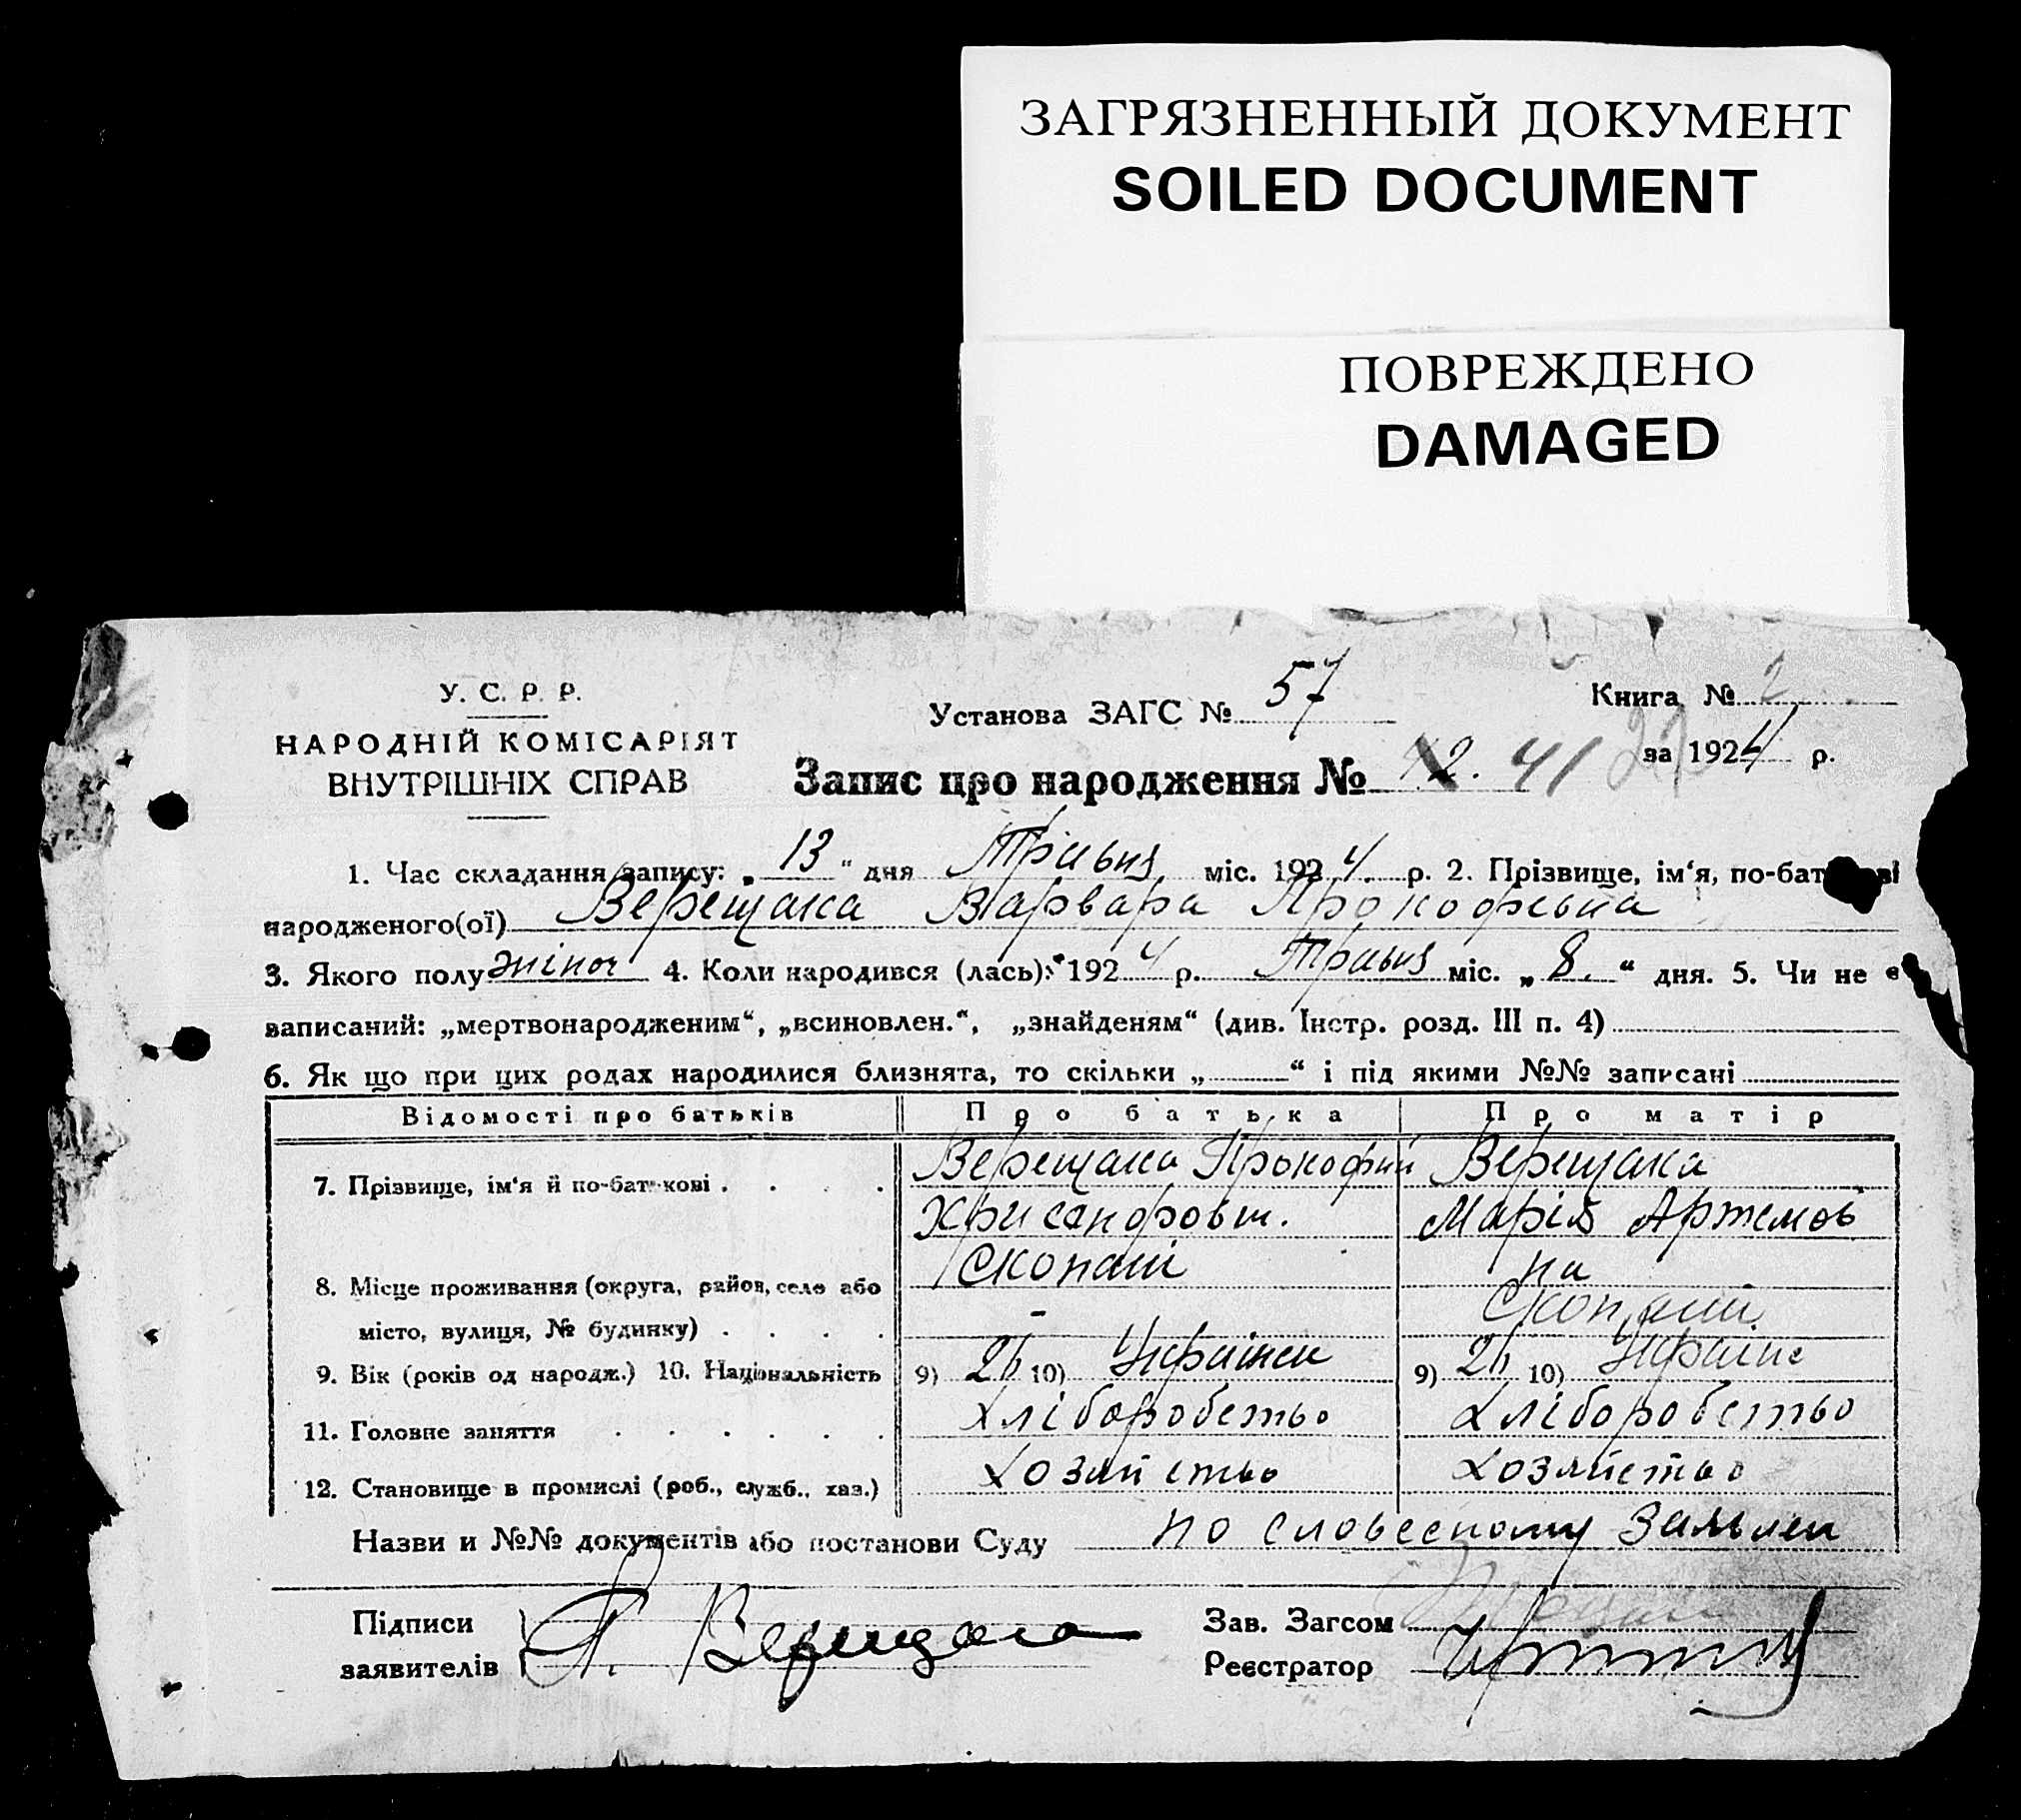 ЗАГРЯЗНЕННЫЙ ДОКУМЕНТ
SOILED DOCUMENT
ПОВРЕЖДЕНО
DAMAGED
У. С. Р. Р.
НАРОДНІЙ КОМІСАРІЯТ
ВНУТРІШНІХ СПРАВ
Установа ЗАГС № 57
Книга № 2
за 1924 р.
Запис про народження № 41
1. Час складання запису: „13“ дня Травня міс. 1924 р. 2. Прізвище, ім‘я, по-бат
народженого(ої) Верещака Варвара Прокофьвна
3. Якого полу жіноч 4. Коли народився (лась): 1924 р. Травня міс. „8.“ дня. 5. Чи не є
записаний: „мертвонародженим“, „всиновлен.“, „знайденям“ (див. Інстр. розд. III п. 4)
6. Як що при цих родах народилися близнята, то скільки „ “ і під якими №№ записані
Відомості про батьків Про батька Про матір
7. Прізвище, ім‘я й по-батькові Верещака Прокофий Верещака
Хрисанфовш. Марія Артемов
на
8. Місце проживання (округа, район, село або Скопаш
місто, вулиця, № будинку) - Скопаш
9. Вік (років од народж.) 10. Національність 9) 26 10) Українец 9) 26 10) Україне
11. Головне заняття Хліборобство Хліборобство
12. Становище в промислі (роб., служб., хаз.) Хозяйство Хозяйство
Назви и №№ документів або постанови Суду по словесному Заявлен
Підписи
заявителів П. Верещака
Зав. Загсом
Реєстратор